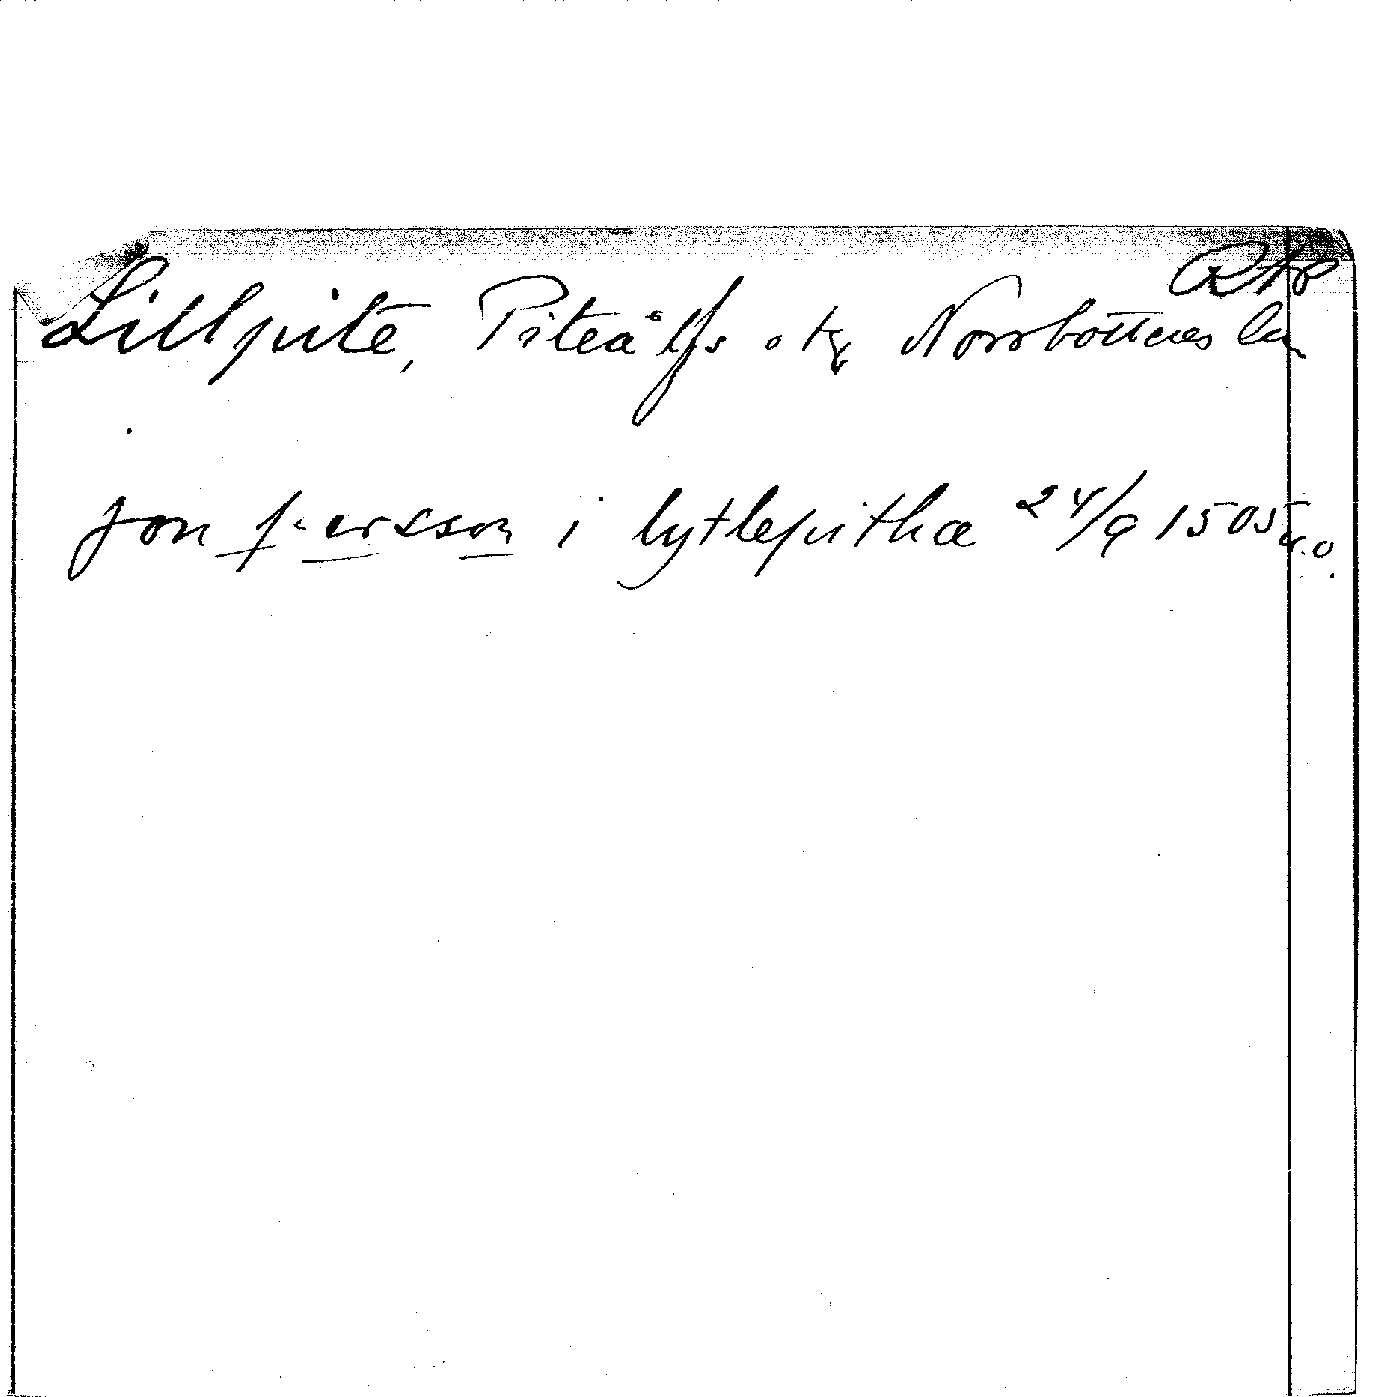 RAp
Lillpite, Piteå lfs o tg Norrbottens län
jon persson i lytlepithæ 24/9 1505 u.o.